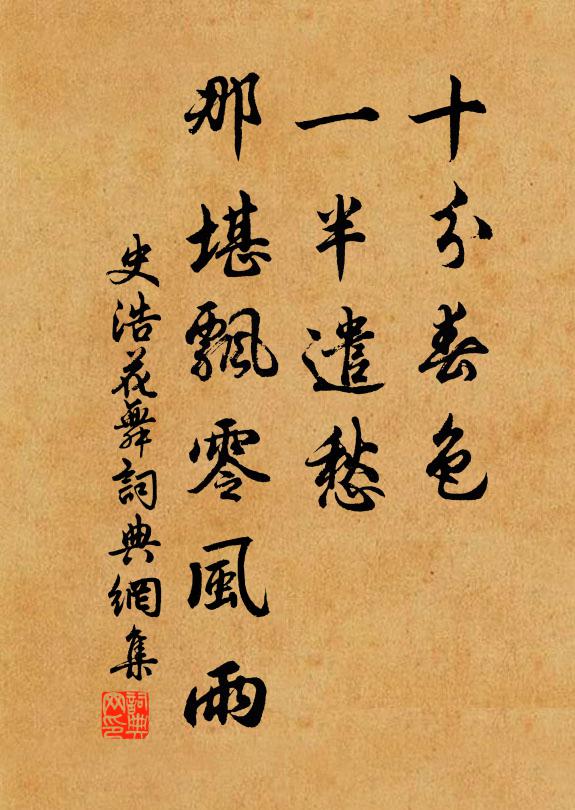 十分春色
一半遣愁
那堪飄零風雨
史浩花舞詞典網集
詞典網印